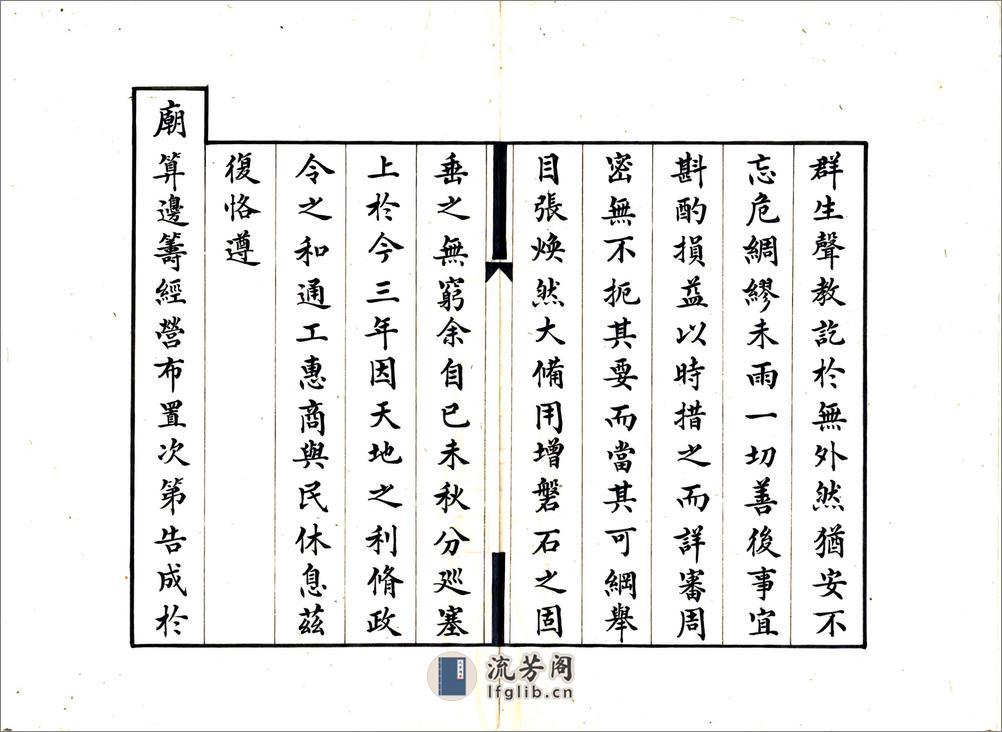 群生聲教訖於無外然猶安不
忘危綢繆未雨一切善後事宜
斟酌損益以時措之而詳審周
密無不扼其要而當其可綱舉
目張煥然大備用增磐石之固
垂之無窮余自己未秋分巡塞
上於今三年因天地之利脩政
令之和通工惠商與民休息茲
復恪遵
廟算邊籌經營布置次第告成於
流芳阁
lfglib.cn